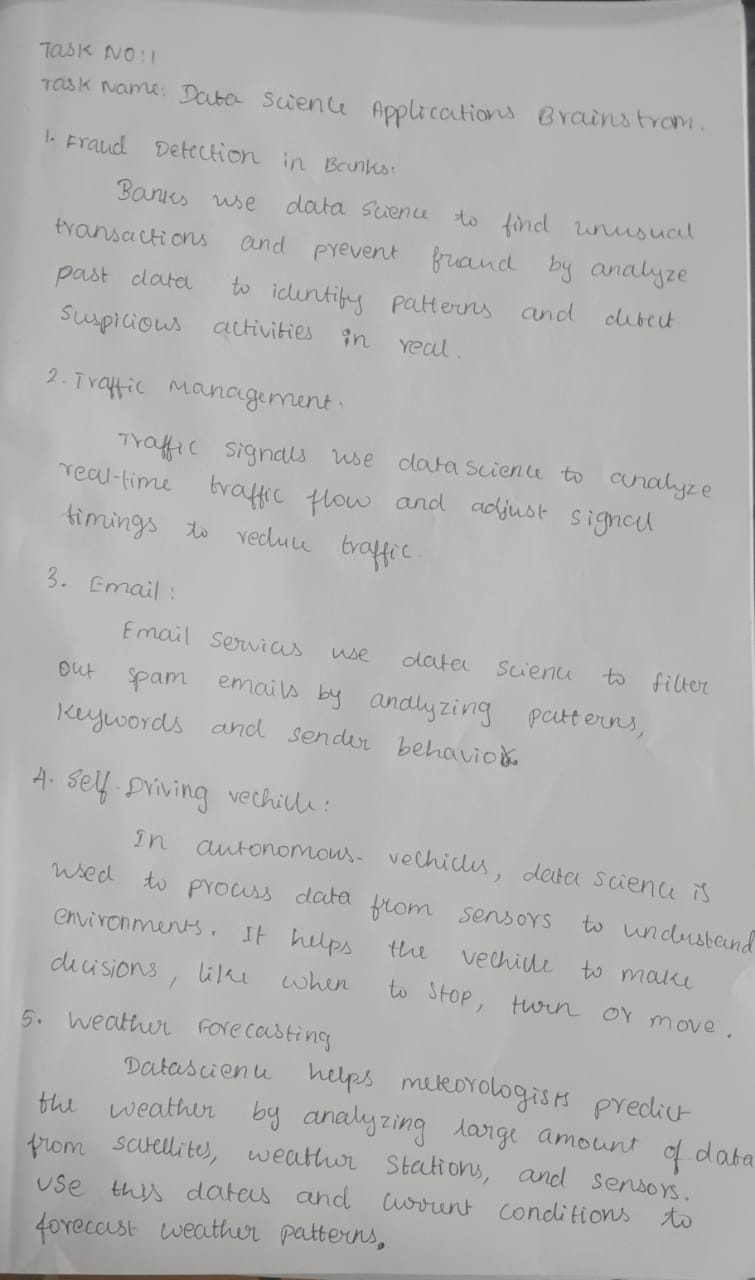 Task NO:1
Task Name: Data Science Applications Brainstrom.
1. Fraud Detection in Banks:
Banks use data science to find unusual
transactions and prevent fruand by analyze
past data to identify patterns and detect
suspicious activities in real.
2. Traffic Management.
Traffic signals use datascience to analyze
real-time traffic flow and adjust signal
timings to reduce traffic.
3. Email:
Email services use data science to filter
out spam emails by analyzing patterns,
keywords and sender behavior.
4. Self-Driving vechicle:
In autonomous- vechicles, data science is
used to process data from sensors to understand
environments. It helps the vechicle to make
decisions, like when to stop, turn or move.
5. Weather Forecasting
Datascience helps meteorologists predict
the weather by analyzing large amount of data
from satellites, weather stations, and sensors.
use this datas and current conditions to
forecast weather patterns.